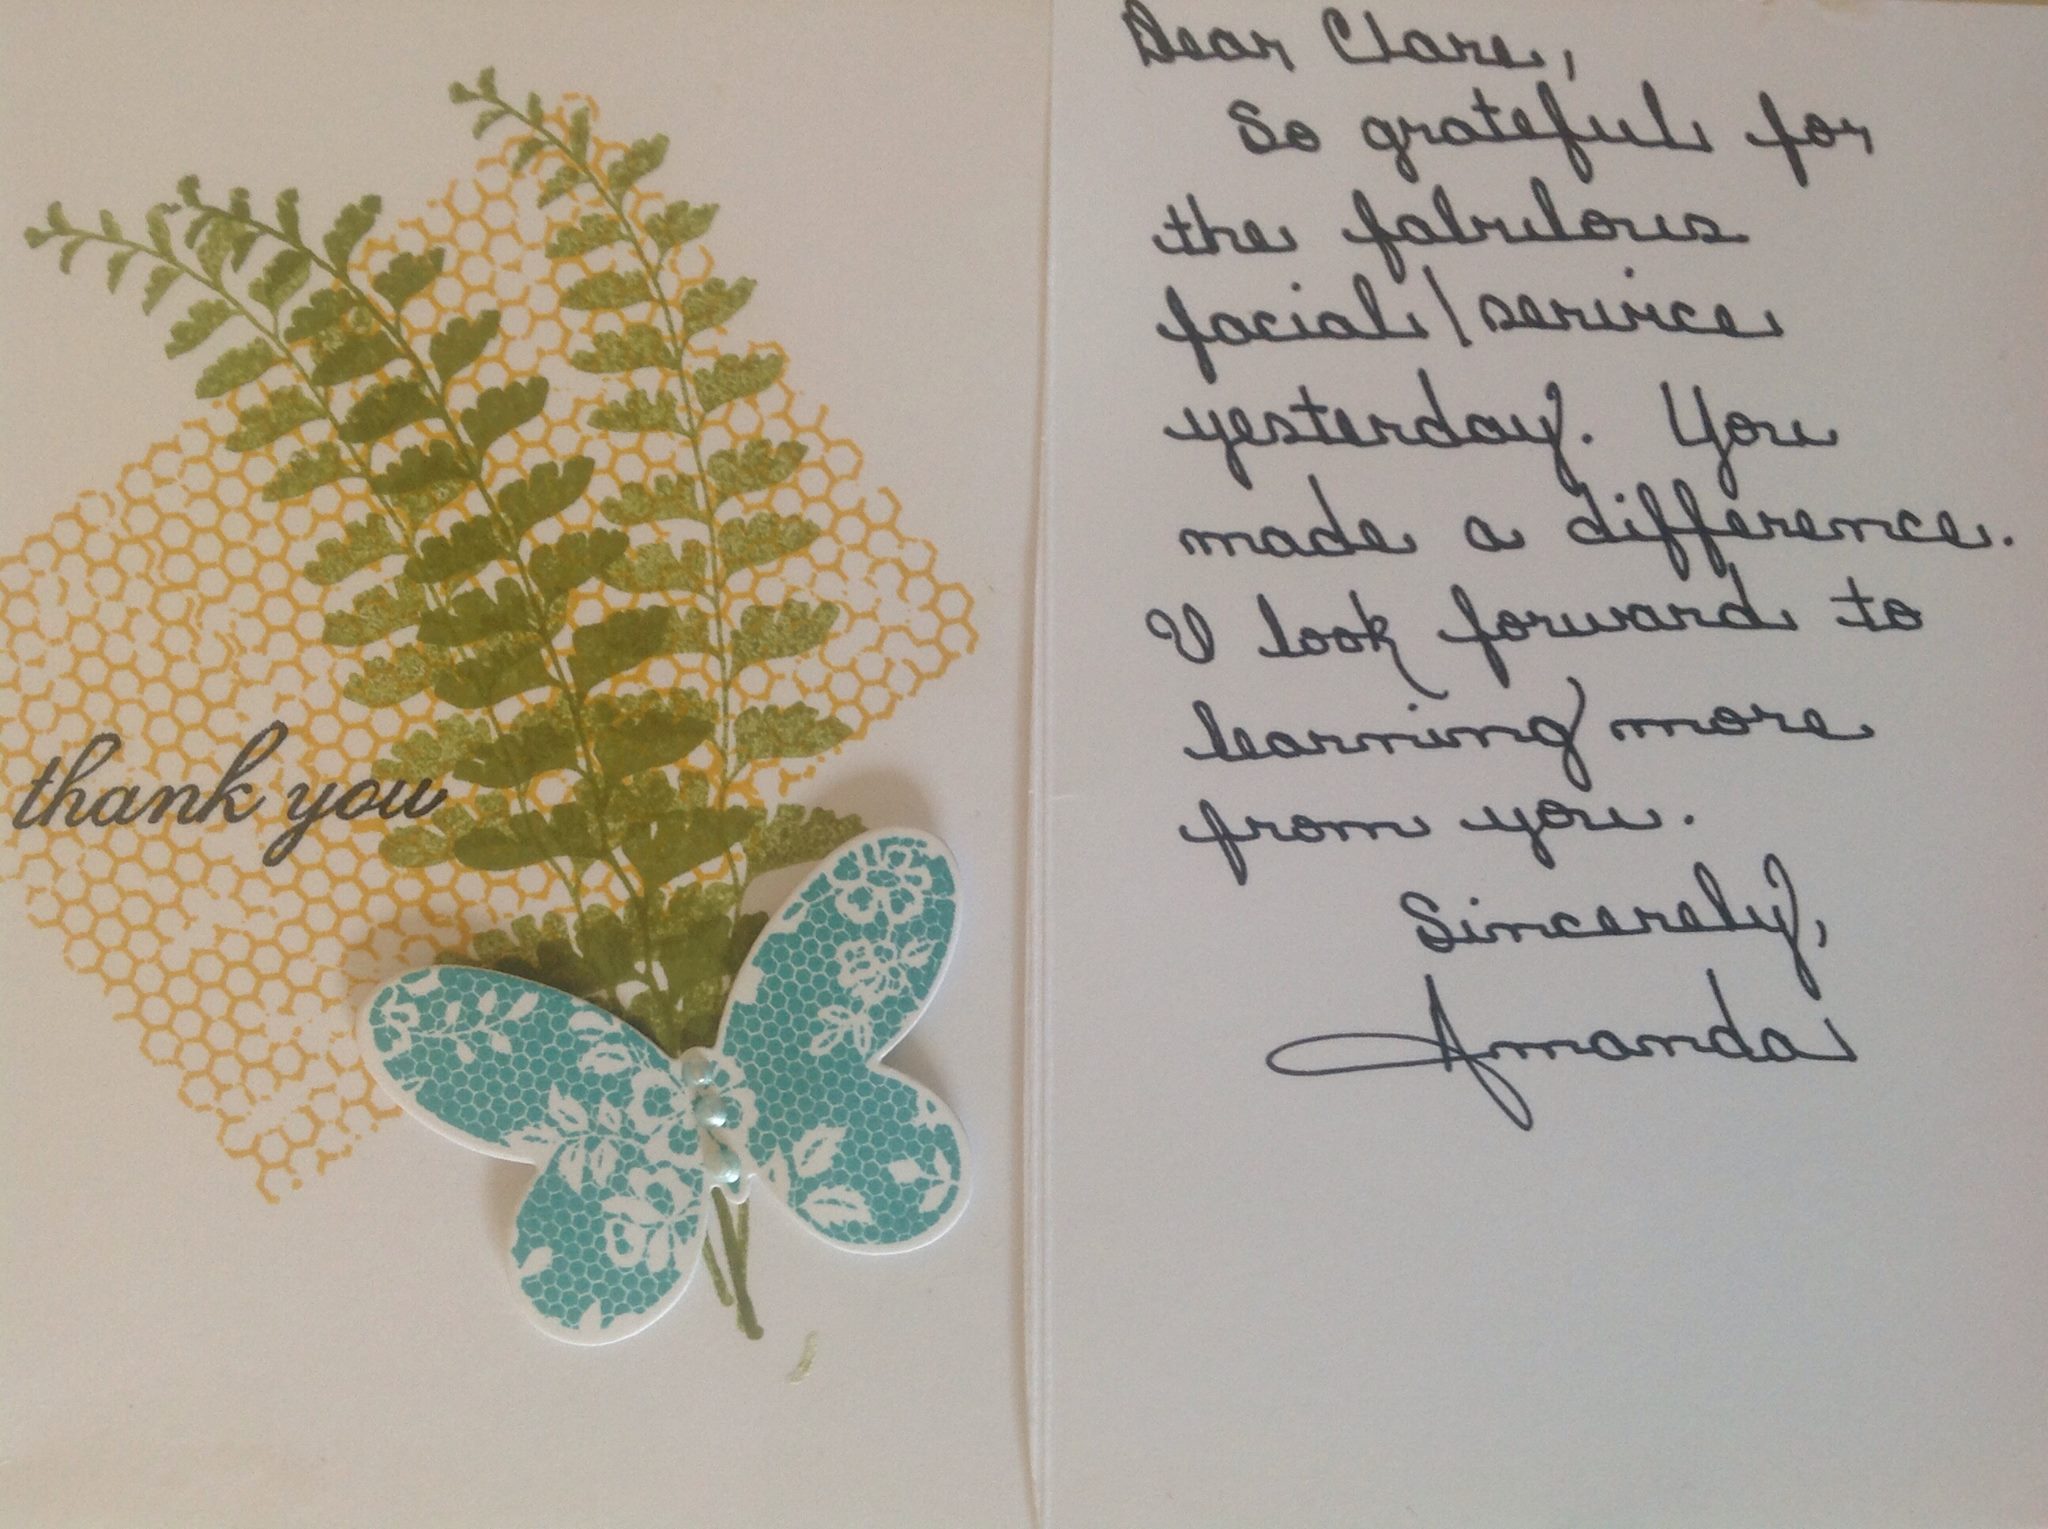 thank you
Dear Clare,
So grateful for
the fabulous
facial/service
yesterday. You
made a difference.
I look forward to
learning more
from you.
Sincerely,
Amanda